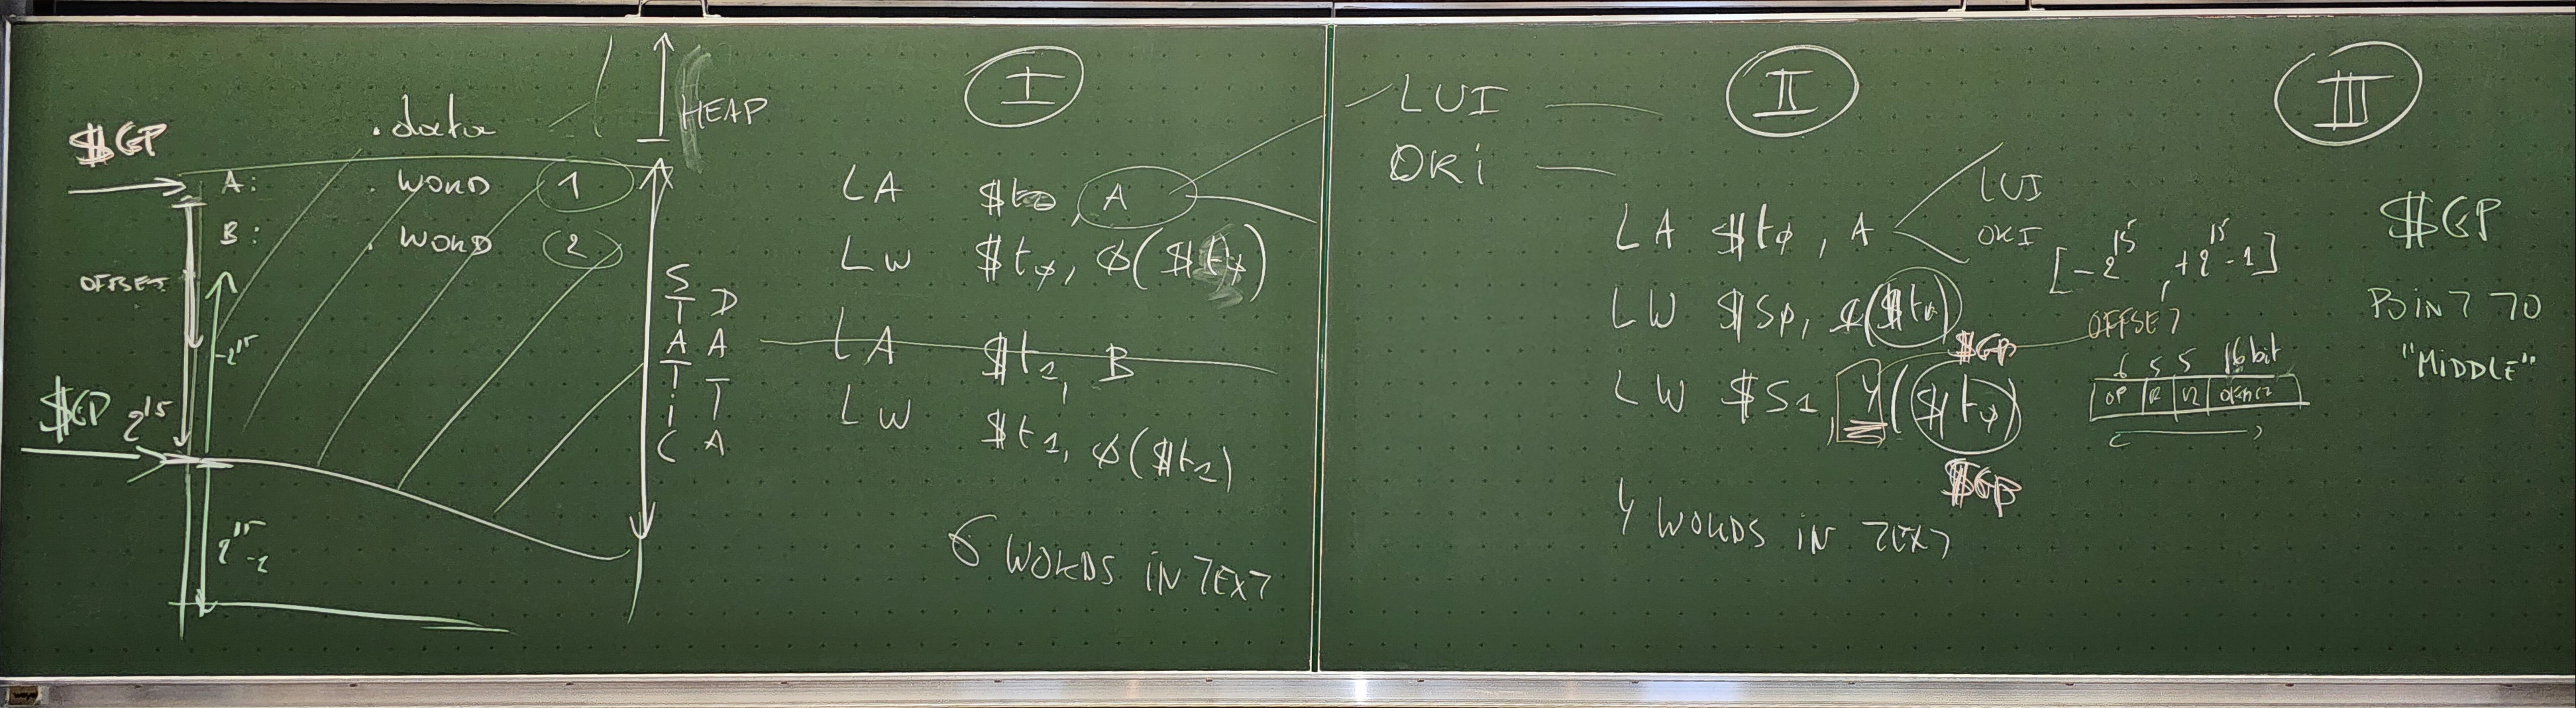 $GP
.data
HEAP
A: .WORD 1
B: .WORD 2
OFFSET
-2^15
$GP 2^15
2^15-1
STATIC
DATA
I
LA $t0, A
LW $t0, 0($t0)
LA $t1, B
LW $t1, 0($t1)
6 WORDS IN TEXT
LUI
ORi
II
LA $t0, A
LUI
ORI
LW $S0, 0($t0)
$GP
LW $S1, 4($t0)
$GP
4 WORDS iN TEXT
[-2^15, +2^15-1]
OFFSET
6 5 5 16 bit
OP
III
$GP
POiNT TO
"MiDDLE"